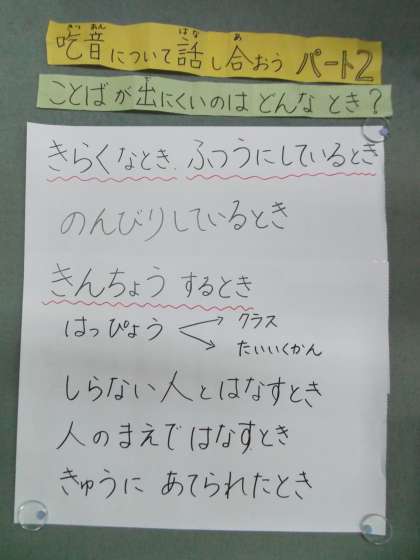 吃音について話し合おう パート2
ことばが出にくいのは どんな とき？
きらくなとき、ふつうにしているとき
のんびりしているとき
きんちょう するとき
はっぴょう
クラス
たいいくかん
しらない人とはなすとき
人のまえではなすとき
きゅうに あてられたとき